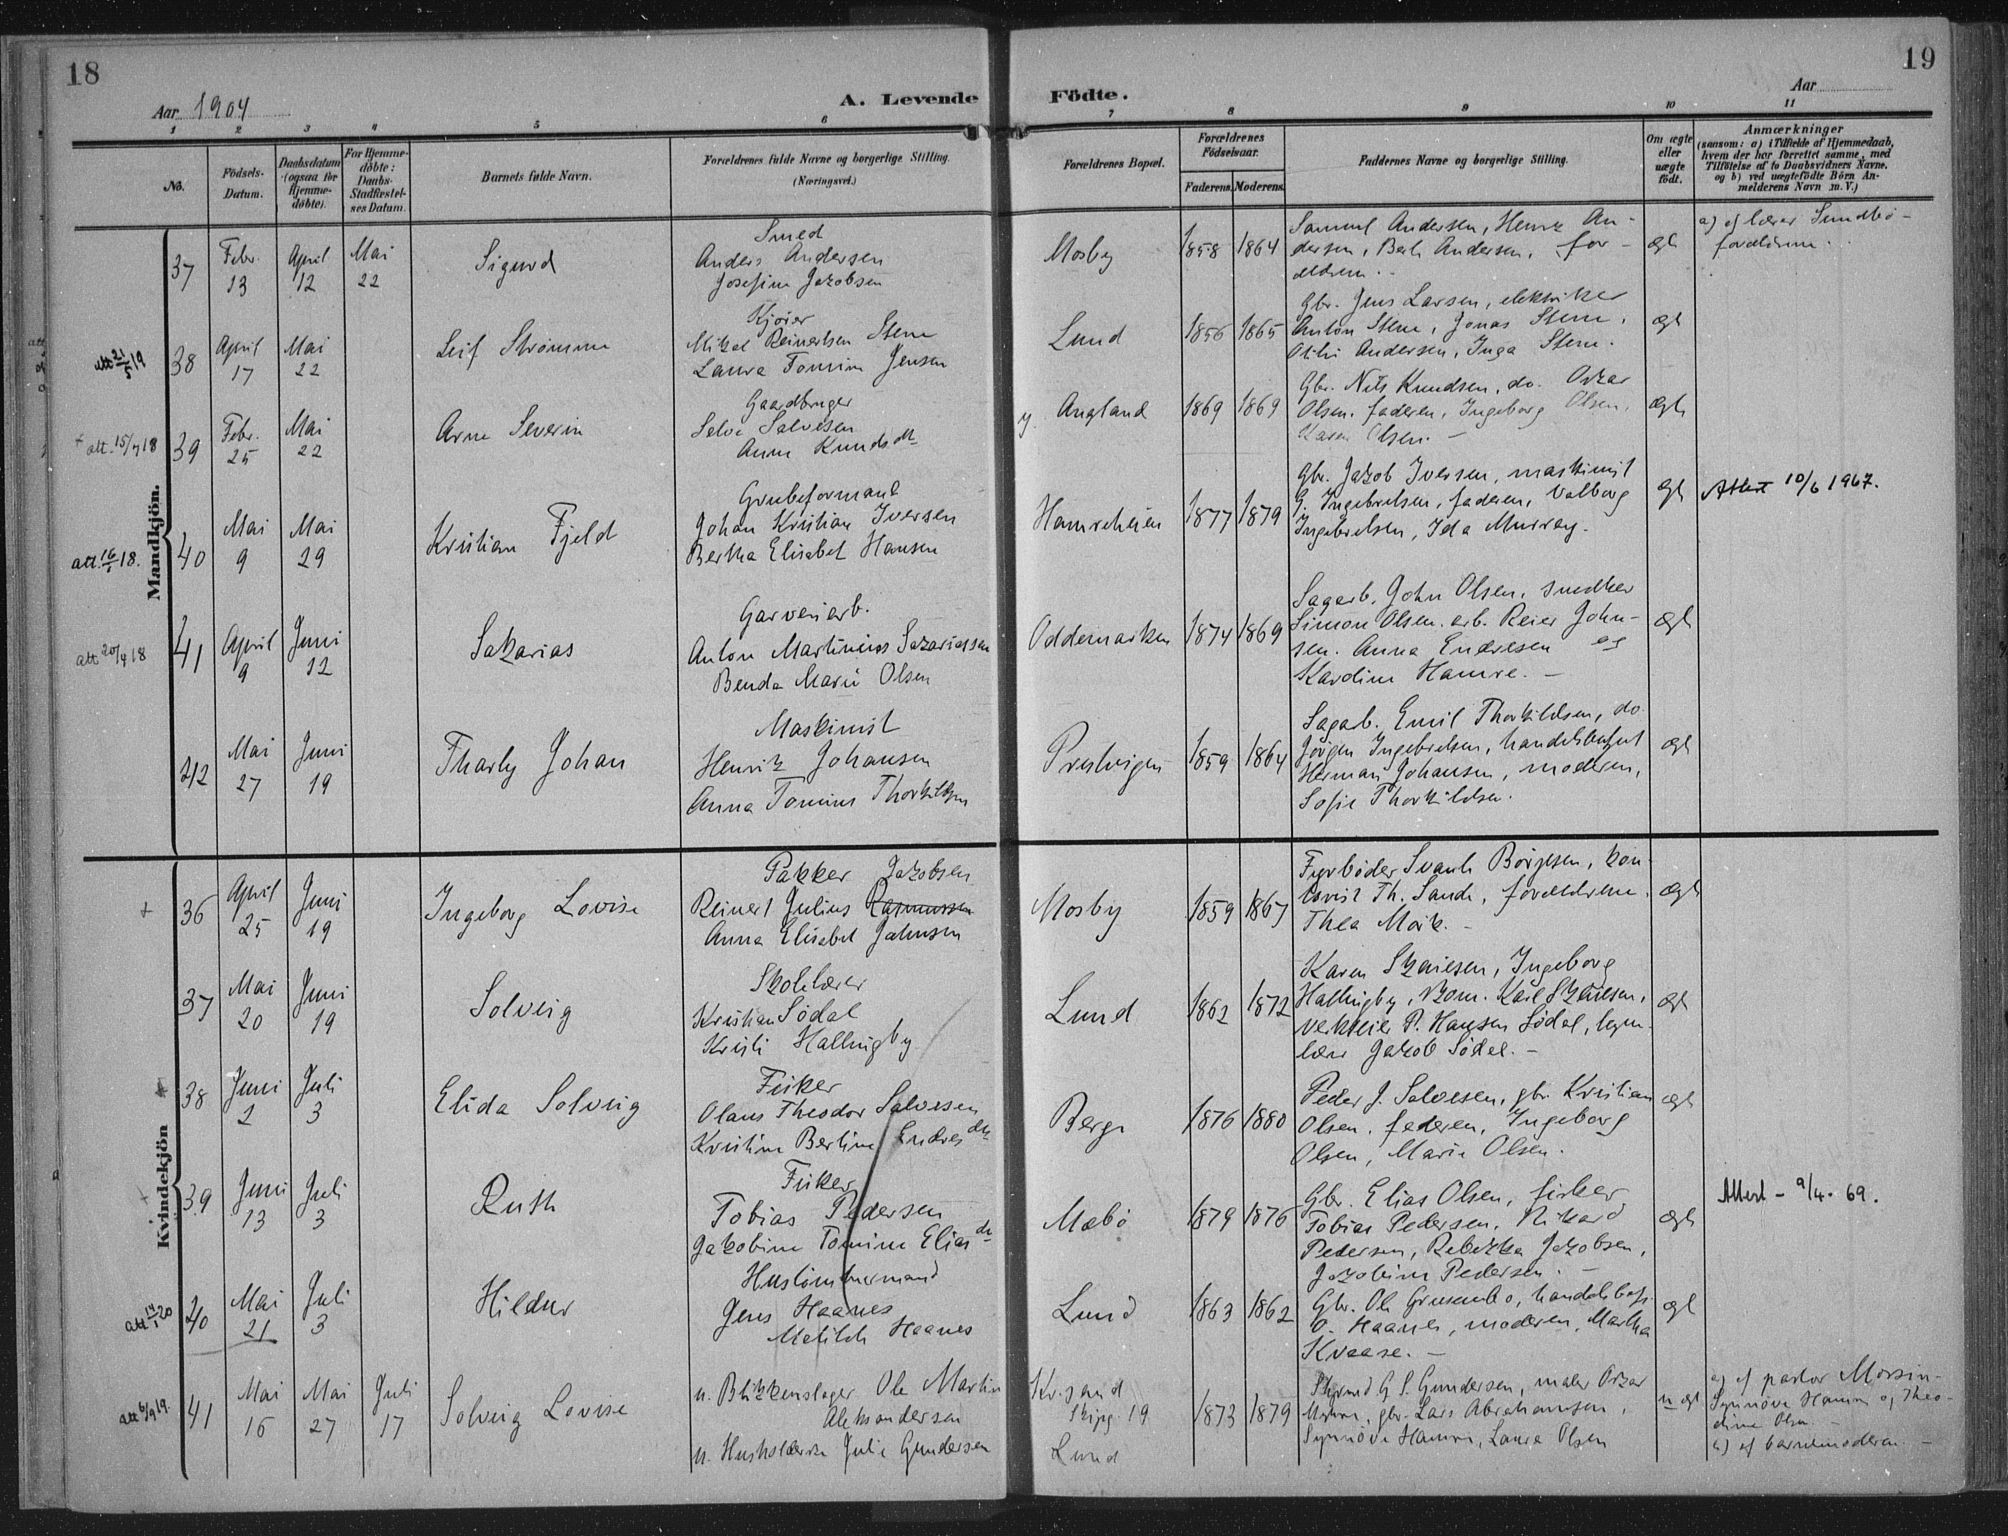 18
Aar 1904
A. Levende Födte.
Aar
19
1 2 3 4 5 6 7 8 9 10 11
No.
Födsels-Datum.
Daabsdatum (ogsaa for Hjemme-döbte).
For Hjemme-döbte: Daabs-Stadfæstel-ses Datum.
Barnets fulde Navn.
Forældrenes fulde Navne og borgerlige Stilling. (Næringsvei.)
Forældrenes Bopæl.
Forældrenes Födselsaar.
Faderens. Moderens.
Faddernes Navne og borgerlige Stilling.
Om ægte eller uægte födt.
Anmærkninger
(saasom: a) i Tilfælde af Hjemmedaab,
hvem der har forrettet samme, med
Tilföielse af to Daabsvidners Navne,
og b) ved uægtefödte Börn An-
melderens Navn m. V.)
Mandkjön.
37 Febr. 13 April 12 Mai 22 Sigurd
Smed
Anders Andersen
Josefine Jakobsen
Mosby 1858 1864
Samuel Andersen, Henrik An-
dersen, Berta Andersen, for-
ældrene.
ægte
a) af lærer Sundbö -
forældrene.
att 21/5 19
38 April 17 Mai 22 Leif Strömme
Kjörer
Mikal Reinertsen Stene
Laura Tomine Jensen
Lund 1856 1865
Gbr. Jens Larsen, elektriker
Anton Stene, Jonas Stene,
Otilie Andersen, Inga Stene.
ægt
+ att. 15/7 18
39 Febr. 25 Mai 22 Arne Severin
Gaardbruger
Selve Salvesen
Anne Knudsdtr
y. Augland 1869 1869
Gbr. Nils Knudsen, do. Oskar
Olsen, faderen, Ingeborg Olsen,
Karen Olsen. -
ægte
att. 16/1 18.
40 Mai 9 Mai 29 Kristian Fjeld
Grubeformand
Johan Kristian Iversen
Bertha Elisabet Hansen
Hamreheien 1877 1879
Gbr. Jakob Iversen, maskinist
G. Ingebretsen, faderen, Valborg
Ingebretsen, Ida Murray.
ægt
Attest 10/6 1967.
att 20/9 18
41 April 9 Juni 12 Sakarias
Garveriarb.
Anton Martinius Sakariassen
Benda Marie Olsen
Oddemarken 1874 1869
Sagarb. John Olsen, snedker
Simon Olsen. arb. Reier John-
sen. Anna Endresen og
Karoline Hamre. -
ægt
42 Mai 27 Juni 19 Tharly Johan
Maskinist
Henrik Johansen
Anna Tomine Thorkildsen
Prestvigen 1859 1864
Sagarb. Emil Thorkildsen, do.
Jörgen Ingebretsen, handelsbetjent
Herman Johansen, moderen,
Sofie Thorkildsen.
ægt
Kvindekjön
+
36 April 25 Juni 19 Ingeborg Lovise
Pakker Jakobsen
Reinert Julius Rasmussen
Anna Elisabet Jahnsen
Mosby 1859 1867
Fyrböder Svanti Börjesen, kon-
torist Th. Sande, forældrene.
Thea Mörk. -
ægt
37 Mai 20 Juni 19 Solveig
Skolelærer
Kristian Södal
Kristi Hallingby.
Lund 1862 1872
Karen Skaiesen, Ingeborg
Hallingby, Karl Skaiesen,
verkeier P. Hansen Södal,
lærer Jakob Södal. -
ægt
+
38 Juni 2 Juli 3 Elida Solveig
Fisker
Olaus Theodor Salvesen
Kristine Bertine Endresdtr
Berge 1876 1880
Peder J. Salvesen, gbr. Kristian
Olsen, faderen, Ingeborg
Olsen, Marie Olsen.
ægt
+
39 Juni 13 Juli 3 Ruth
Fisker
Tobias Pedersen
Jakobine Tomine Eliasdtr
Mæbö 1879 1876
Gbr. Elias Olsen, fisker
Tobias Pedersen, Rikard
Pedersen, Rebekka Jakobsen,
Jakobine Pedersen. -
ægt
Attest - 9/4. 69.
att 14/1 20
40 Mai 21 Juli 3 Hildur
Hustömmermand
Jens Haanes
Matilde Haanes
Lund 1863 1862
Gbr. Ole Gruse, handelsbest.
O. Haanes, moderen, Martha
Kvaase. -
ægt
att 6/9 19.
41 Mai 16 Mai 27 Juli 17 Solveig Lovise
u. Blikkenslager Ole Martin
Aleksandersen
u. Husholderske Julie Gundersen
Kr.sand
Skipg. 19
Lund
1873 1879
Styrmd G. S. Gundersen, maler Oskar
gbr. Lars Abrahamsen,
Synnöve Hamre, Laura Olsen
u ægt
a) af pastor Morsin-
Synnöve Hamre og Theo-
dine Olsen. -
b) af barnemoderen. -